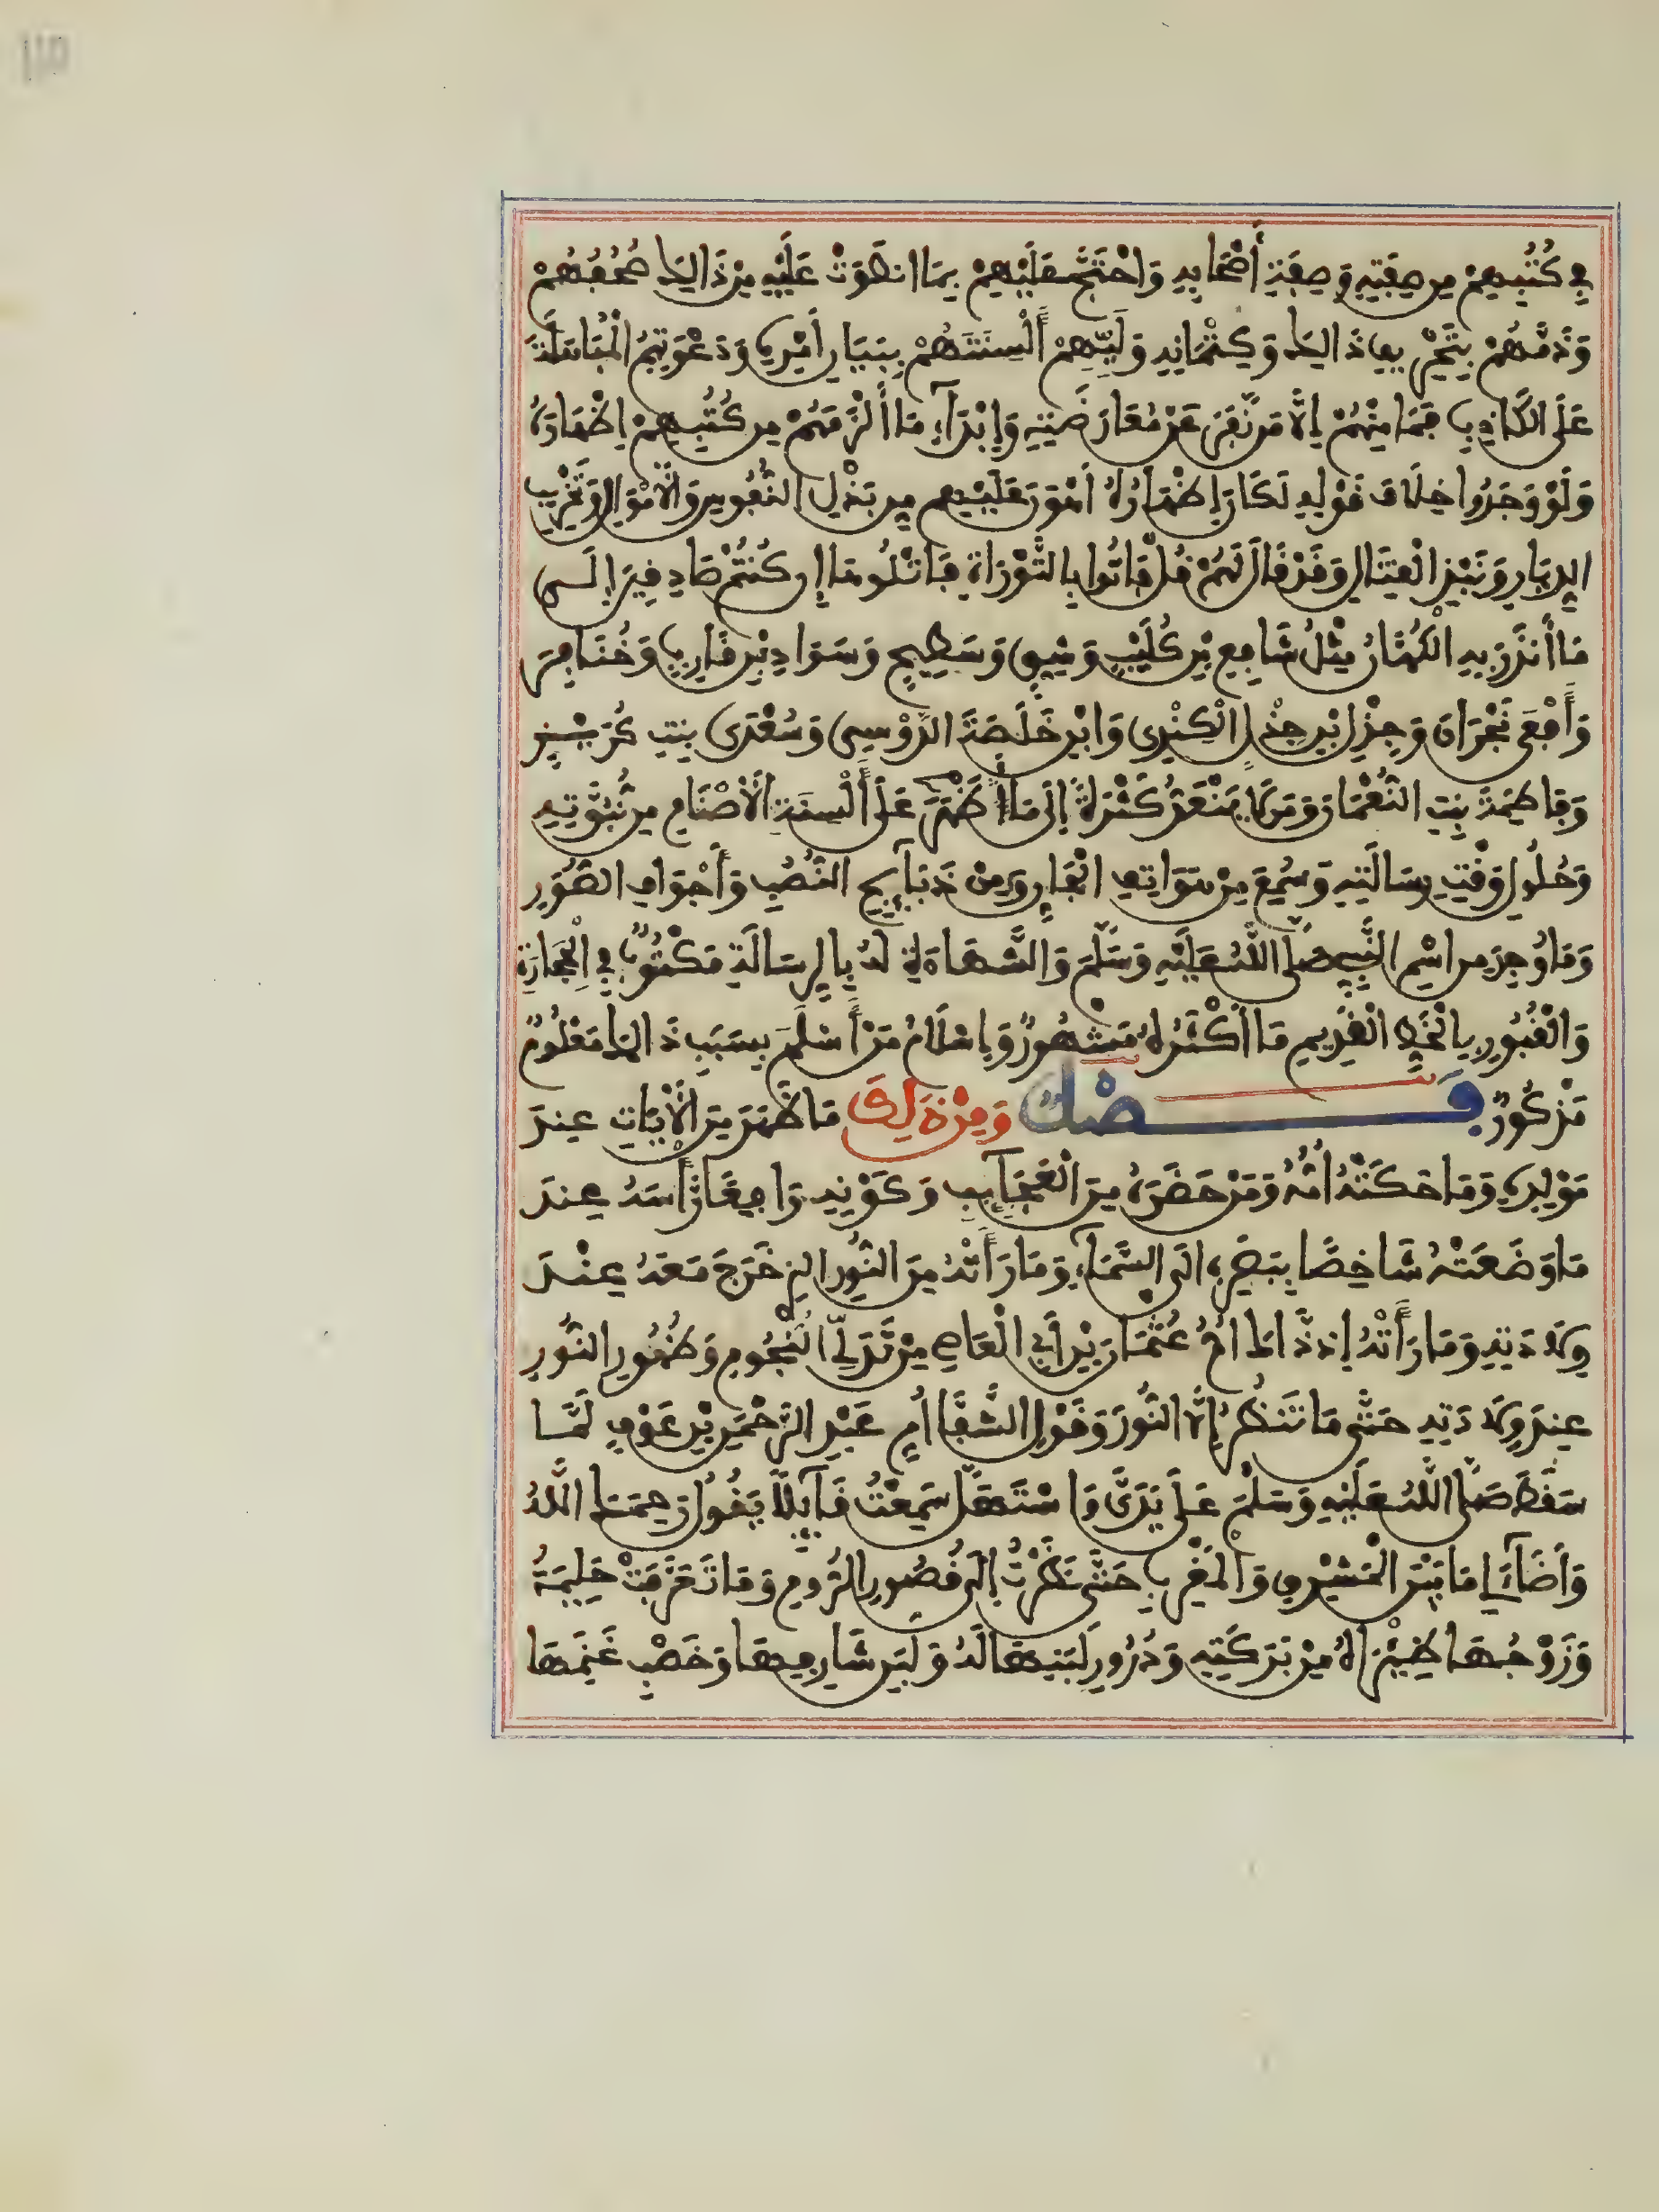 فِي كُتُبِهِمْ مِن صِفَتِهِ وَصِفَةِ أَصْحَابِهِ وَاحْتَجَّ عَلَيْهِمْ بِمَا انطَوَتْ عَلَيْهِ مِنْ ذَالِكَ صُحُفُهُمْ
وَذَمَّهُمْ بِتَحْرِيفِ ذَالِكَ وَكِتْمَانِهِ وَلَيِّهِمْ أَلْسِنَتَهُمْ بِبَيَانِ أَمْرِهِ وَدَعْوَتِهِمُ الْمُبَاهَلَةَ
عَلَى الْكَاذِبِ فَمَا مِنْهُمْ إِلَّا مَن نَّفَرَ عَنْ مُعَارَضَتِهِ وَإِبْدَاءِ مَا أَلْزَمَهُمْ مِن كُتُبِهِمْ إِظْهَارَهُ
وَلَوْ وَجَدُوا خِلَافَ قَوْلِهِ لَكَانَ إِظْهَارُهُ أَهْوَنَ عَلَيْهِم مِن بَذْلِ النُّفُوسِ وَالْأَمْوَالِ وَتَخْرِيبِ
الدِّيَارِ وَنَبْذِ الْقِتَالِ وَقَدْ قَالَ لَهُمْ قُلْ فَاتُوا بِالتَّوْرَاةِ فَاتْلُوهَا إِن كُنتُمْ صَادِقِينَ إِلَى
مَا أَنذَرَ بِهِ الْكُهَّانُ مِثْلُ شَافِعِ بْنِ كُلَيْبٍ وَشِقٍّ وَسَطِيحٍ وَسَوَادِ بْنِ قَارِبٍ وَخُنَافِرَ
وَأَفْعَى نَجْرَانَ وَجِذْلِ بْنِ جِذْلٍ الْكِنْدِي وَابْنِ خَلَصَةَ الدَّوْسِي وَسُعْدَى بِنتِ كُرَيْزٍ
وَفَاطِمَةَ بِنتِ النُّعْمَانِ وَمَن لَّا يَنْعَدُّ كَثْرَةً إِلَى مَا ظَهَرَ عَلَى أَلْسِنَةِ الْأَصْنَامِ مِن نُّبُوَّتِهِ
وَحُلُولِ وَقْتِ رِسَالَتِهِ وَسُمِعَ مِنْ هَوَاتِفِ الْجَانِ وَمِنْ ذَبَائِحِ النُّصُبِ وَأَجْوَافِ الصُّوَرِ
وَمَا وُجِدَ مِن اسْمِ النَّبِيِّ صَلَّى اللَّهُ عَلَيْهِ وَسَلَّمَ وَالشَّهَادَةِ لَهُ بِالرِّسَالَةِ مَكْتُوبًا فِي الْحِجَارَةِ
وَالْقُبُورِ بِالْخَطِّ الْقَدِيمِ مَا أَكْثَرُهُ مَشْهُورٌ وَإِسْلَامُ مَنْ أَسْلَمَ بِسَبَبِ ذَالِكَ مَعْلُومٌ
مَذْكُورٌ فَصْلٌ وَمِنْ ذَلِكَ مَا ظَهَرَ مِنَ الْآيَاتِ عِندَ
مَوْلِدِهِ وَمَا حَكَتْهُ أُمُّهُ وَمَنْ حَضَرَهُ مِنَ الْعَجَائِبِ وَكَوْنِهِ رَافِعًا رَّأْسَهُ عِندَ
مَا وَضَعَتْهُ شَاخِصًا بِبَصَرِهِ إِلَى السَّمَاءِ وَمَا رَأَتْهُ مِنَ النُّورِ الذِي خَرَجَ مَعَهُ عِنْدَ
وِلَادَتِهِ وَمَا رَأَتْهُ إِذْ ذَّاكَ أُمُّ عُثْمَانَ بْنِ أَبِي الْعَاصِ مِنْ تَدَلِّي النُّجُومِ وَظُهُورِ النُّورِ
عِندَ وِلَادَتِهِ حَتَّى مَا تَنظُرُ إِلَّا النُّورَ وَقَوْلِ الشِّفَّا أُمِّ عَبْدِ الرَّحْمَنِ بْنِ عَوْفٍ لَمَّا
سَقَطَ صَلَّى اللَّهُ عَلَيْهِ وَسَلَّمَ عَلَى يَدَيَّ وَاسْتَهَلَّ سَمِعْتُ قَائِلًا يَقُولُ رَحِمَكَ اللَّهُ
وَأَضَاءَ لِي مَا بَيْنَ الْمَشْرِقِ وَالْمَغْرِبِ حَتَّى نَظَرْتُ إِلَى قُصُورِ الرُّومِ وَمَا تَعَرَّفَتْ حَلِيمَةُ
وَزَوْجُهَا ظِئْرَاهُ مِنْ بَرَكَتِهِ وَدُرُورِ لَبَنِهَا لَهُ وَلَبَنِ شَارِفِهَا وَخَصْبِ غَنَمِهَا